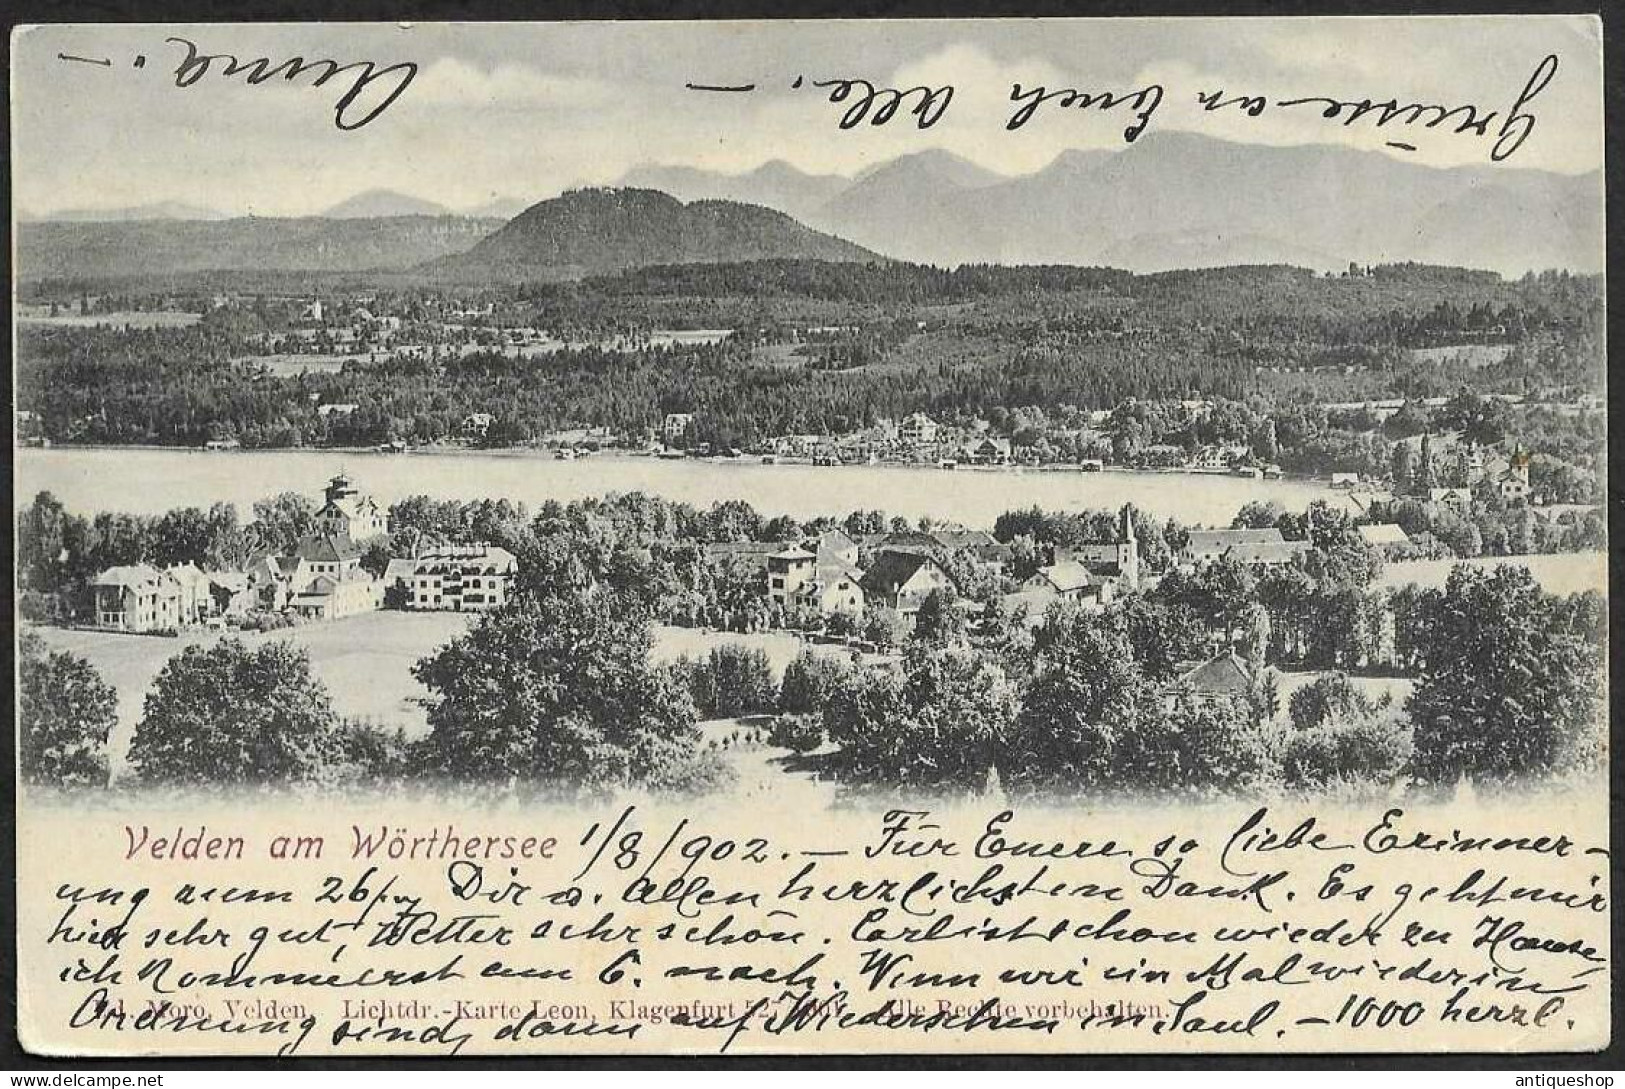 Velden am Wörthersee 1/8/902. — Für Euere so liebe Erinner-
ung zum 26/ Dir u. Allen herzlichsten Dank. Es geht mir
hier sehr gut, Wetter sehr schön. Carl ist schon wieder zu Hause,
ich komme erst am 6. nach. Wenn wir ein Mal wieder in
Ordnung sind, dann auf Wiedersehen in Saul. — 1000 herzl.
Moro, Velden. Lichtdr.-Karte Leon, Klagenfurt Alle Rechte vorbehalten.
Grüsse an Euch Alle. —
Anna. —
antiqueshop